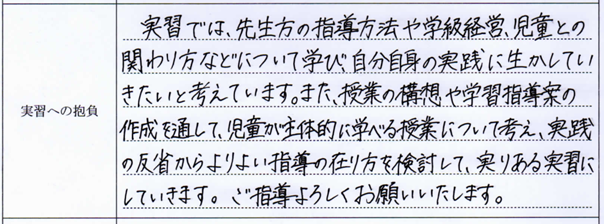 実習への抱負
実習では、先生方の指導方法や学級経営、児童との
関わり方などについて学び、自分自身の実践に生かしてい
きたいと考えています。また、授業の構想や学習指導案の
作成を通して、児童が主体的に学べる授業について考え、実践
の反省からよりよい指導の在り方を検討して、実りある実習に
していきます。ご指導よろしくお願いいたします。